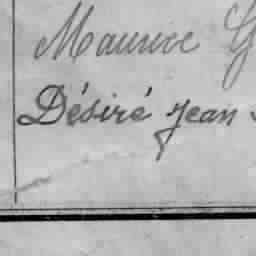 Maurice G
Désiré Jean